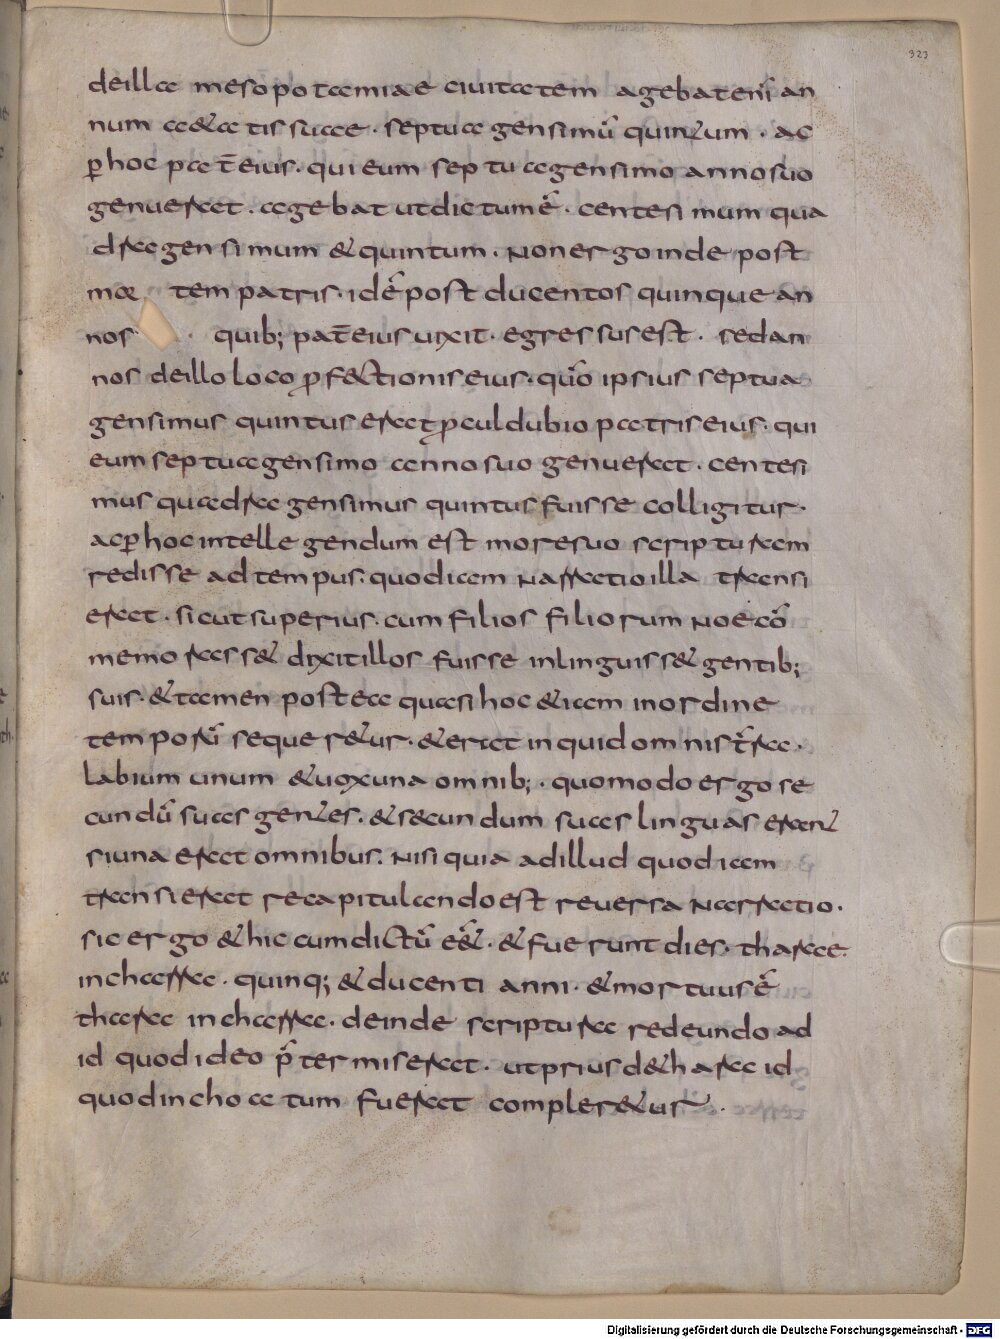 323
deilla mesopotamiae ciuitatem agebateni͞ an
num aetatis suae · septuagensimu͞ quintum · ac
ꝑhoc pat͞eius · quieum septuagensimo annosuo
genuerat · agebat utdictume͞ · centesimum qua
dragensimum &quintum · Nonergoinde post
mo tem patris · ide͞ post ducentos quinque an
nos · quib; pat͞eius uixit · egressusest · sedan
nos deilloloco ꝓfectioniseius · quo͞ ipsius septua
gensimus quintus erat ꝓculdubio patriseius · qui
eumseptuagensimo annosuo genuerat · centesi
mus quadragensimus quintusfuisse colligitur ·
acꝑhocintellegendum est moresuo scripturam
redisse adtempus · quodiam Narratioilla transi
erat · sicutsuperius · cumfilios filiorum Noe co͞
memorass& dixitillos fuisse inlinguis& gentib;
suis · &tamen postea quasi hoc &iam inordine
temporu͞ sequer&ur · &erat inquid omnist͞ra ·
labium unum &uoxuna omnib; · quomodo ergo se
cundu͞ suas gentes · &secundum suas linguas erant
siuna erat omnibus · Nisi quia adillud quodiam
transierat recapitulando est reuersa Narratio ·
sic ergo &hic cumdictu͞ e͞e& · &fuerunt dies · tharae ·
incharra · quinq; &ducenti anni · &mortuuse͞
thara incharra · deinde scriptura redeundo ad
id quodideo p͞termiserat · utprius de&hara id
quodinchoatum fuerat compler&ur ·
Digitalisierung gefördert durch die Deutsche Forschungsgemeinschaft - DFG